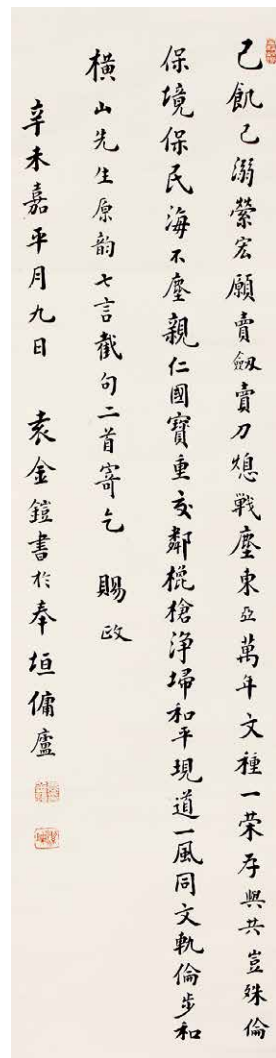 己飢己溺縈宏願賣劔賣刀熄戰塵東亞萬年文種一榮存與共豈殊倫
保境保民海不塵親仁國寶重交鄰欃槍淨埽和平現道一風同文軌倫步和
橫山先生原韵七言截句二首寄乞　賜政
辛未嘉平月九日　袁金鎧書於奉垣傭廬